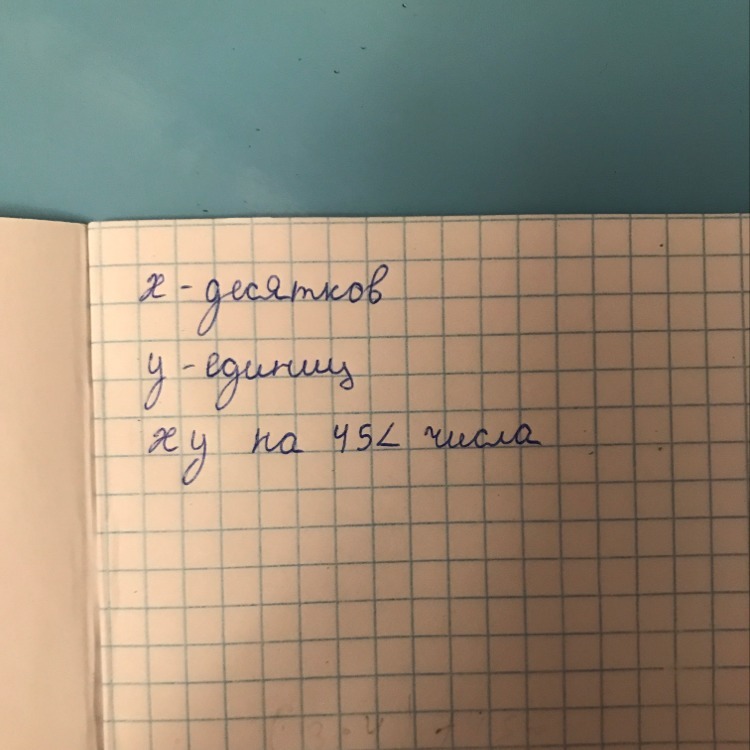 x - десятков
у - единиц
ху на 45< числа